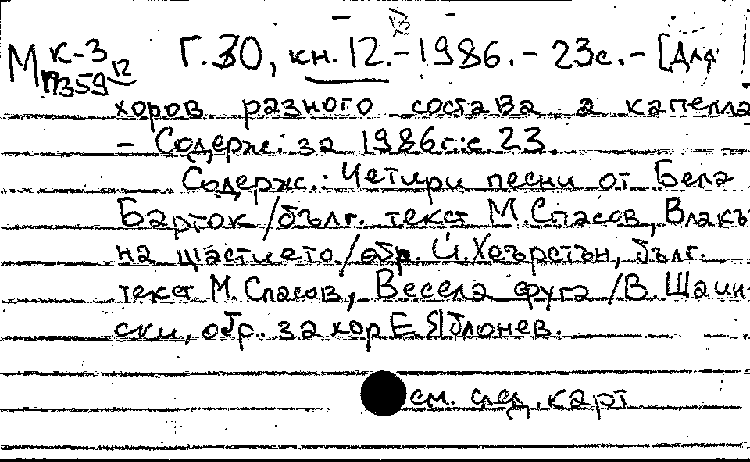 М К-3 П359 12 Г.30, кн. 12. – 1986. – 23с. – [Для
хоров разного состава а капелла
– Содерж: за 1986г: с 23.
Содерж.: Четири песни от Бела
Барток /бълг. текст М.Спасов, Влакът
на щастието /обр. Й.Хеърстън, бълг.
текст М.Спасов, Весела фуга /В. Шаин-
ски, обр. за хор Е.Яблонев.
см. след. карт